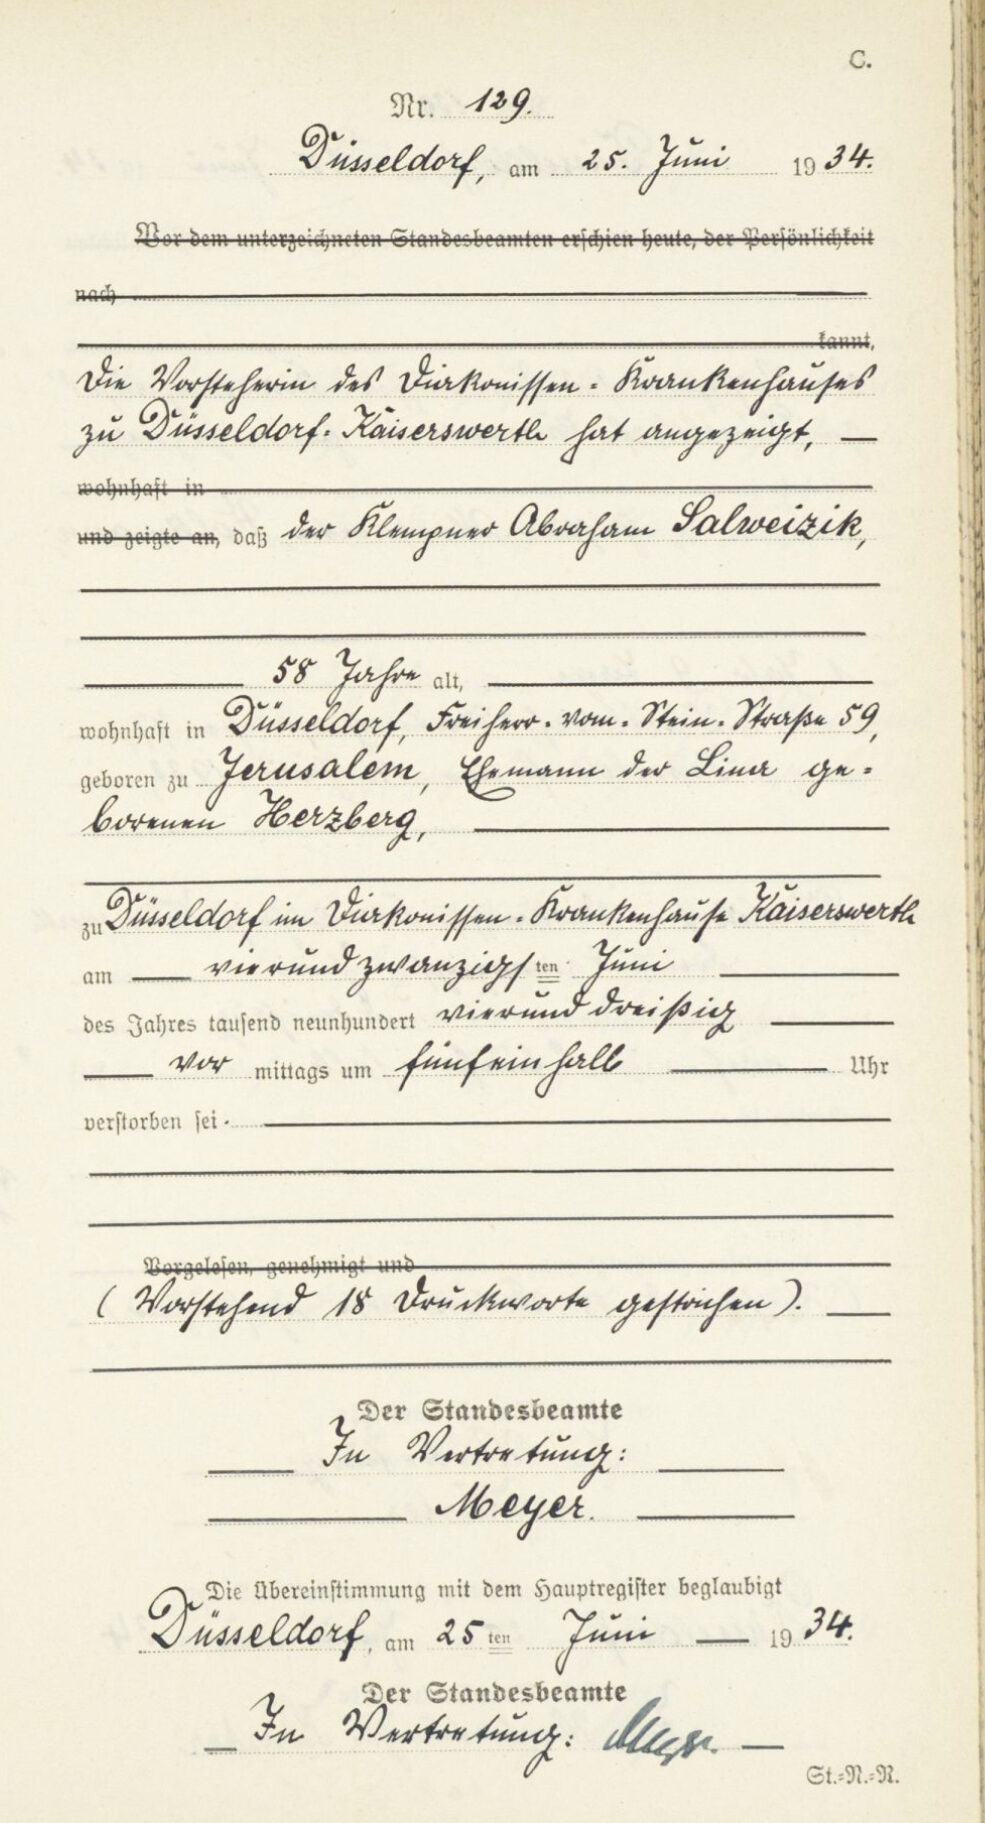 C.
Nr. 129.
Düsseldorf, am 25. Juni 1934.
Vor dem unterzeichneten Standesbeamten erschien heute, der Persönlichkeit
nach
kannt,
Die Vorsteherin des Diakonissen-Krankenhauses
zu Düsseldorf-Kaiserswerth hat angezeigt,
wohnhaft in
und zeigte an, daß der Klempner Abraham Salweizik,
58 Jahre alt,
wohnhaft in Düsseldorf, Freiherr-vom-Stein-Straße 59,
geboren zu Jerusalem, Ehemann der Lina ge-
borenen Herzberg,
zu Düsseldorf im Diakonissen-Krankenhause Kaiserswerth
am vierundzwanzigsten Juni
des Jahres tausend neunhundert vierunddreißig
vor mittags um fünfeinhalb Uhr
verstorben sei.
Vorgelesen, genehmigt und
(Vorstehend 18 Druckworte gestrichen).
Der Standesbeamte
In Vertretung:
Meyer.
Die Übereinstimmung mit dem Hauptregister beglaubigt
Düsseldorf, am 25ten Juni 1934.
Der Standesbeamte
In Vertretung: Meyer.
St.-N.-R.